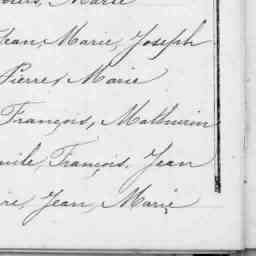 Marie
Jean, Marie, Joseph
Pierre, Marie
François, Mathurin
François, Jean
Jean, Marie